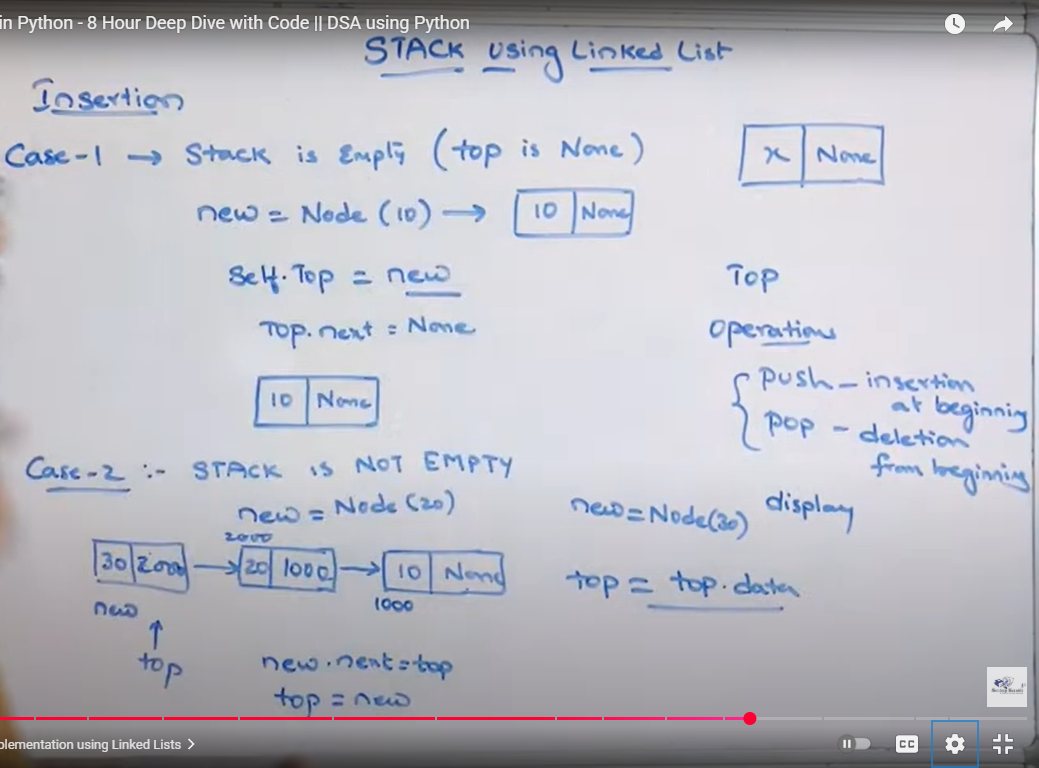 in Python - 8 Hour Deep Dive with Code || DSA using Python
STACK using Linked List
Insertion
Case-1 → Stack is Empty (top is None)
x None
new = Node (10) → 10 None
Self.Top = new
Top
Top.next = None
operations
10 None
push - insertion
at beginning
pop - deletion
from beginning
Case-2 :- STACK IS NOT EMPTY
new = Node (20)
new=Node(30)
display
2000
30 2000 → 20 1000 → 10 None
top = top.data
new
1000
↑
top
new.next=top
top = new
plementation using Linked Lists >
CC